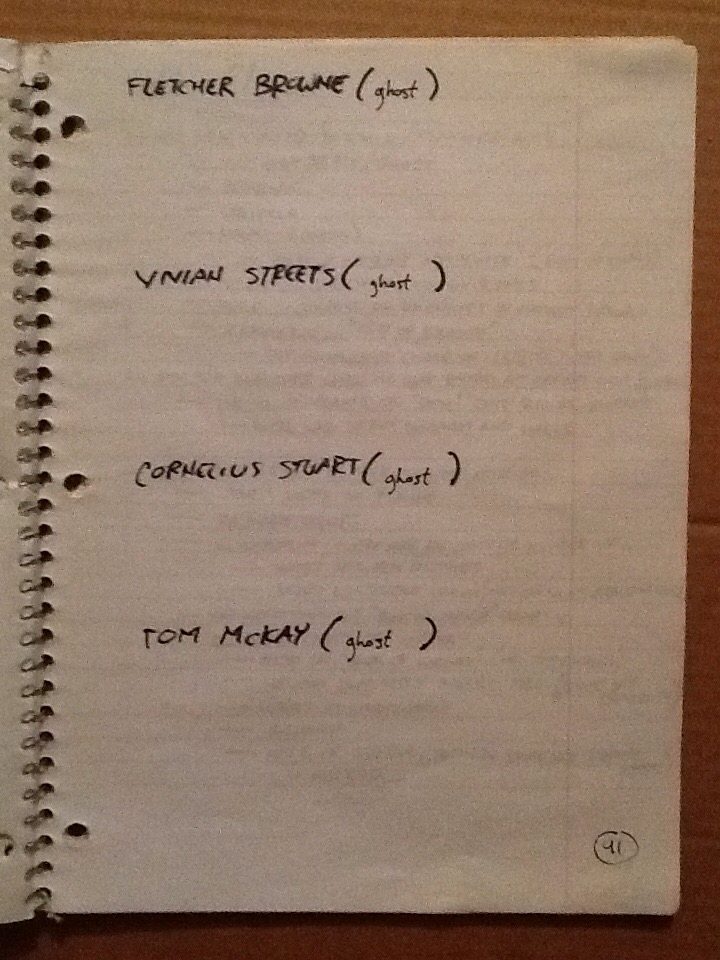 FLETCHER BROWNE (ghost)
VIVIAN STREETS (ghost)
CORNELIUS STUART (ghost)
TOM McKAY (ghost)
41